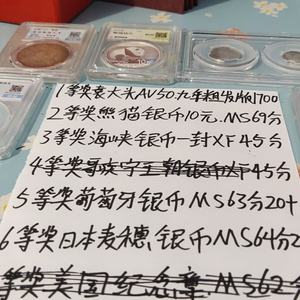 1等奖袁大头AV50.九年粗发版1700
2等奖熊猫银币10元.MS69分
3等奖海峡银币一封XF45分
5等奖葡萄牙银币MS63分20+
6等奖日本麦穗银币MS64分2
等奖美国纪念章MS62分